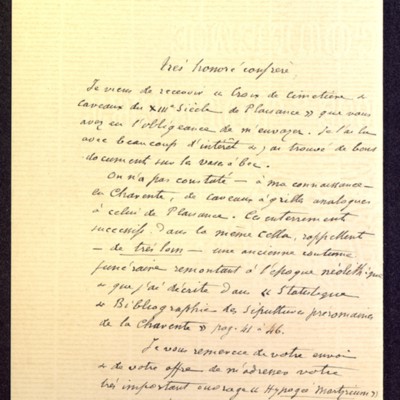 très honoré confrère,
Je viens de recevoir « croix de cimetière &
caveaux du XIIIe Siècle de Plaisance » que vous
avez eu l'obligeance de m'envoyer. Je l'ai lu
avec beaucoup d'intérêt & j'ai trouvé de bons
document sur la vase à bec.
On n'a pas constaté — à ma connaissance —
en Charente, de caveaux à grille analogues
à celui de Plaisance. Ces enterrement
successifs, dans la même cella, rappellent
— de très loin — une ancienne coutume
funéraire remontant à l'époque néolithique
& que j'ai décrite dans « Statistique
& Bibliographie des Sépultures préromaines
de la Charente » pag. 41 à 46.
Je vous remercie de votre envoi
& de votre offre de m'adresser votre
très important ouvrage « Hypogée Martyrium »